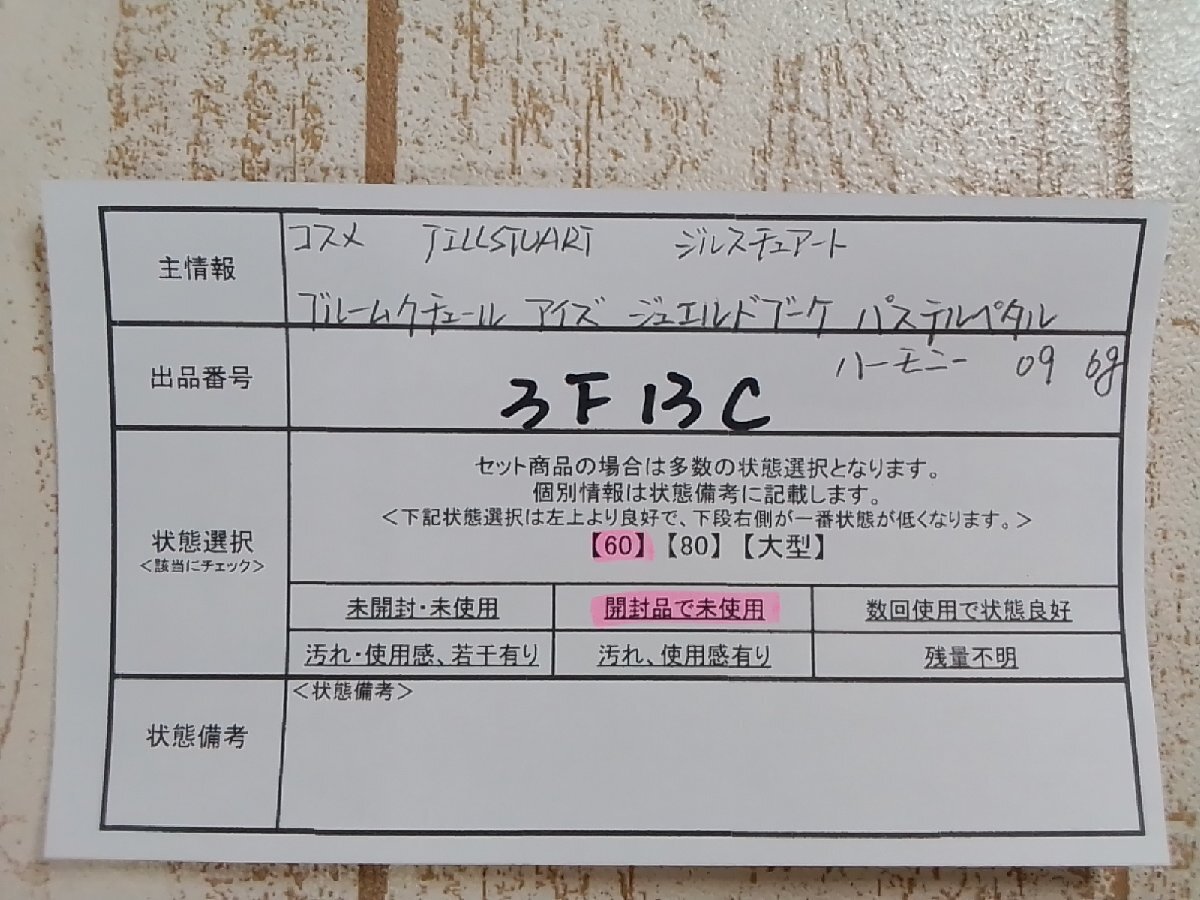 主情報
コスメ JILLSTUART ジルスチュアート
ブルームクチュール アイズ ジュエルドブーケ パステルペタル
ハーモニー 09 6g
出品番号
3F13C
状態選択
<該当にチェック>
セット商品の場合は多数の状態選択となります。
個別情報は状態備考に記載します。
<下記状態選択は左上より良好で、下段右側が一番状態が低くなります。>
【60】【80】【大型】
未開封・未使用 開封品で未使用 数回使用で状態良好
汚れ・使用感、若干有り 汚れ、使用感有り 残量不明
状態備考
<状態備考>